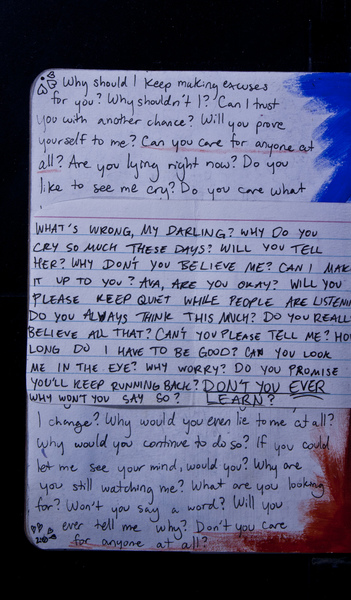 Why should I keep making excuses
for you? Why shouldn't I? Can I trust
you with another chance? Will you prove
yourself to me? Can you care for anyone at
all? Are you lying right now? Do you
like to see me cry? Do you care what
WHAT'S WRONG, MY DARLING? WHY DO YOU
CRY SO MUCH THESE DAYS? WILL YOU TELL
HER? WHY DON'T YOU BELIEVE ME? CAN I MAK
IT UP TO YOU? AVA, ARE YOU OKAY? WILL YOU
PLEASE KEEP QUIET WHILE PEOPLE ARE LISTENIN
DO YOU ALWAYS THINK THIS MUCH? DO YOU REALL
BELIEVE ALL THAT? CAN'T YOU PLEASE TELL ME? HOW
LONG DO I HAVE TO BE GOOD? CAN YOU LOOK
ME IN THE EYE? WHY WORRY? DO YOU PROMISE
YOU'LL KEEP RUNNING BACK? DON'T YOU EVER
WHY WON'T YOU SAY SO? LEARN?
I change? Why would you even lie to me at all?
Why would you continue to do so? If you could
let me see your mind, would you? Why are
you still watching me? What are you looking
for? Won't you say a word? Will you
ever tell me why? Don't you care
for anyone at all?